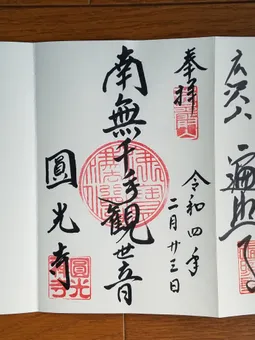 広沢山
遍照
奉拝
令和四年
二月廿三日
南無千手観世音
圓光寺